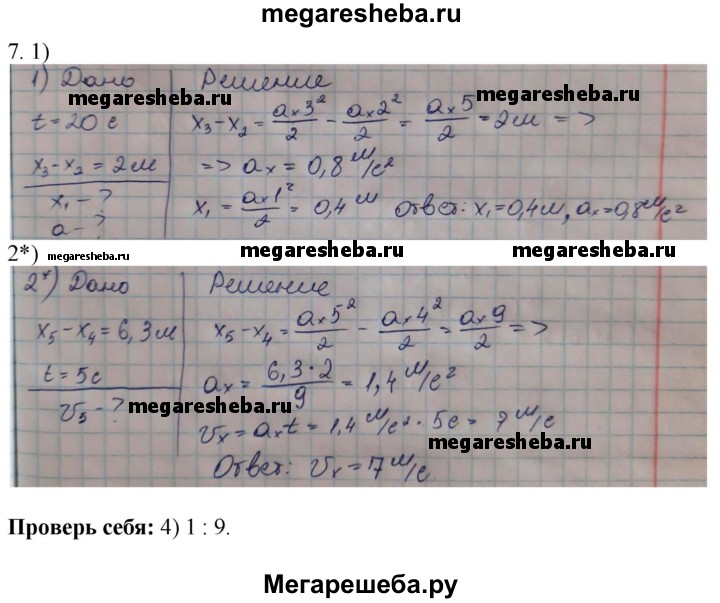 megaresheba.ru
7. 1)
1) Дано Решение
megaresheba.ru megaresheba.ru
t = 20 с x₃ - x₂ = aₓ3²/2 - aₓ2²/2 = aₓ5/2 = 2м =>
x₃ - x₂ = 2м => aₓ = 0,8 м/с²
x₁ - ? x₁ = aₓ1²/2 = 0,4 м Ответ: x₁ = 0,4м, aₓ = 0,8 м/с²
a - ?
2*) megaresheba.ru megaresheba.ru megaresheba.ru
2*) Дано Решение
x₅ - x₄ = 6,3м x₅ - x₄ = aₓ5²/2 - aₓ4²/2 = aₓ9/2 =>
t = 5с aₓ = 6,3·2/9 = 1,4 м/с²
υ₅ - ? megaresheba.ru υₓ = aₓt = 1,4 м/с² · 5с = 7 м/с
megaresheba.ru
Ответ: υₓ = 7 м/с
Проверь себя: 4) 1 : 9.
Мегарешеба.ру